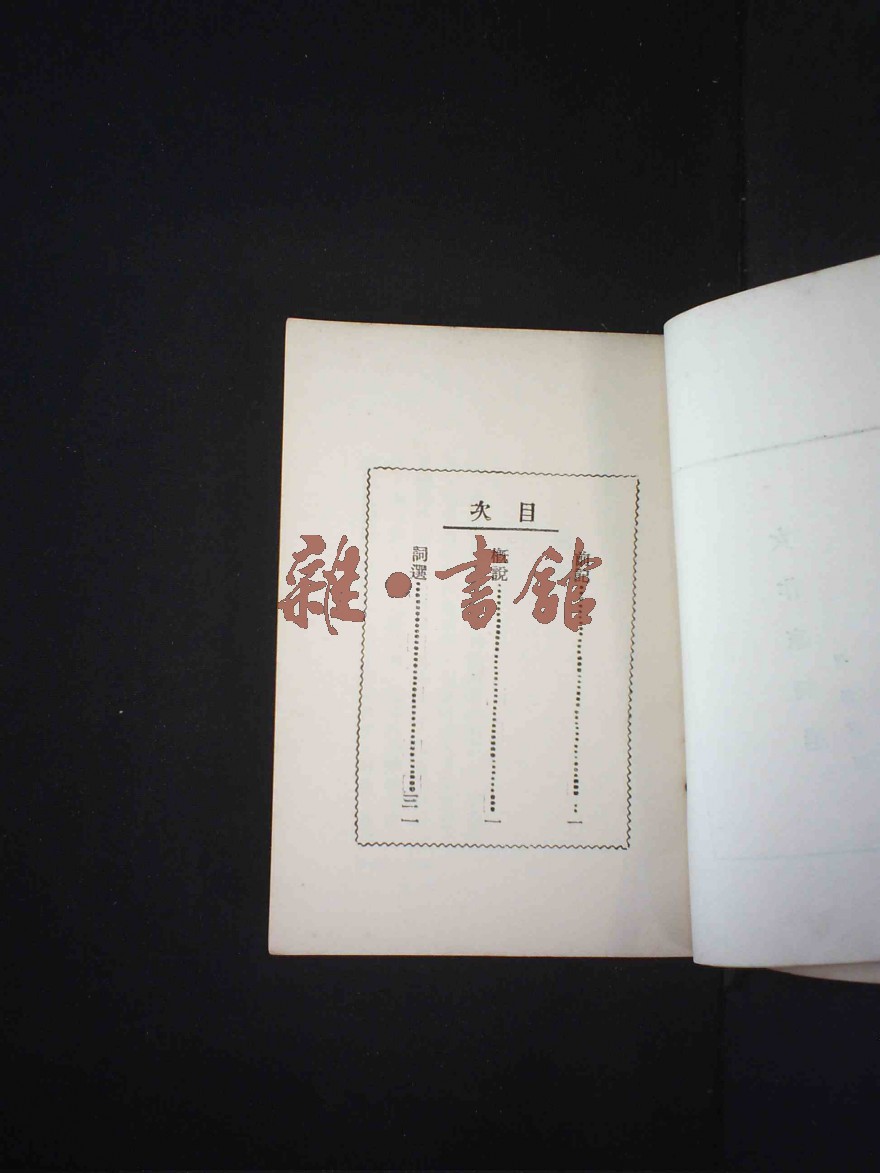 目次
…………一
概說…………一
詞選…………三一
雜·書館